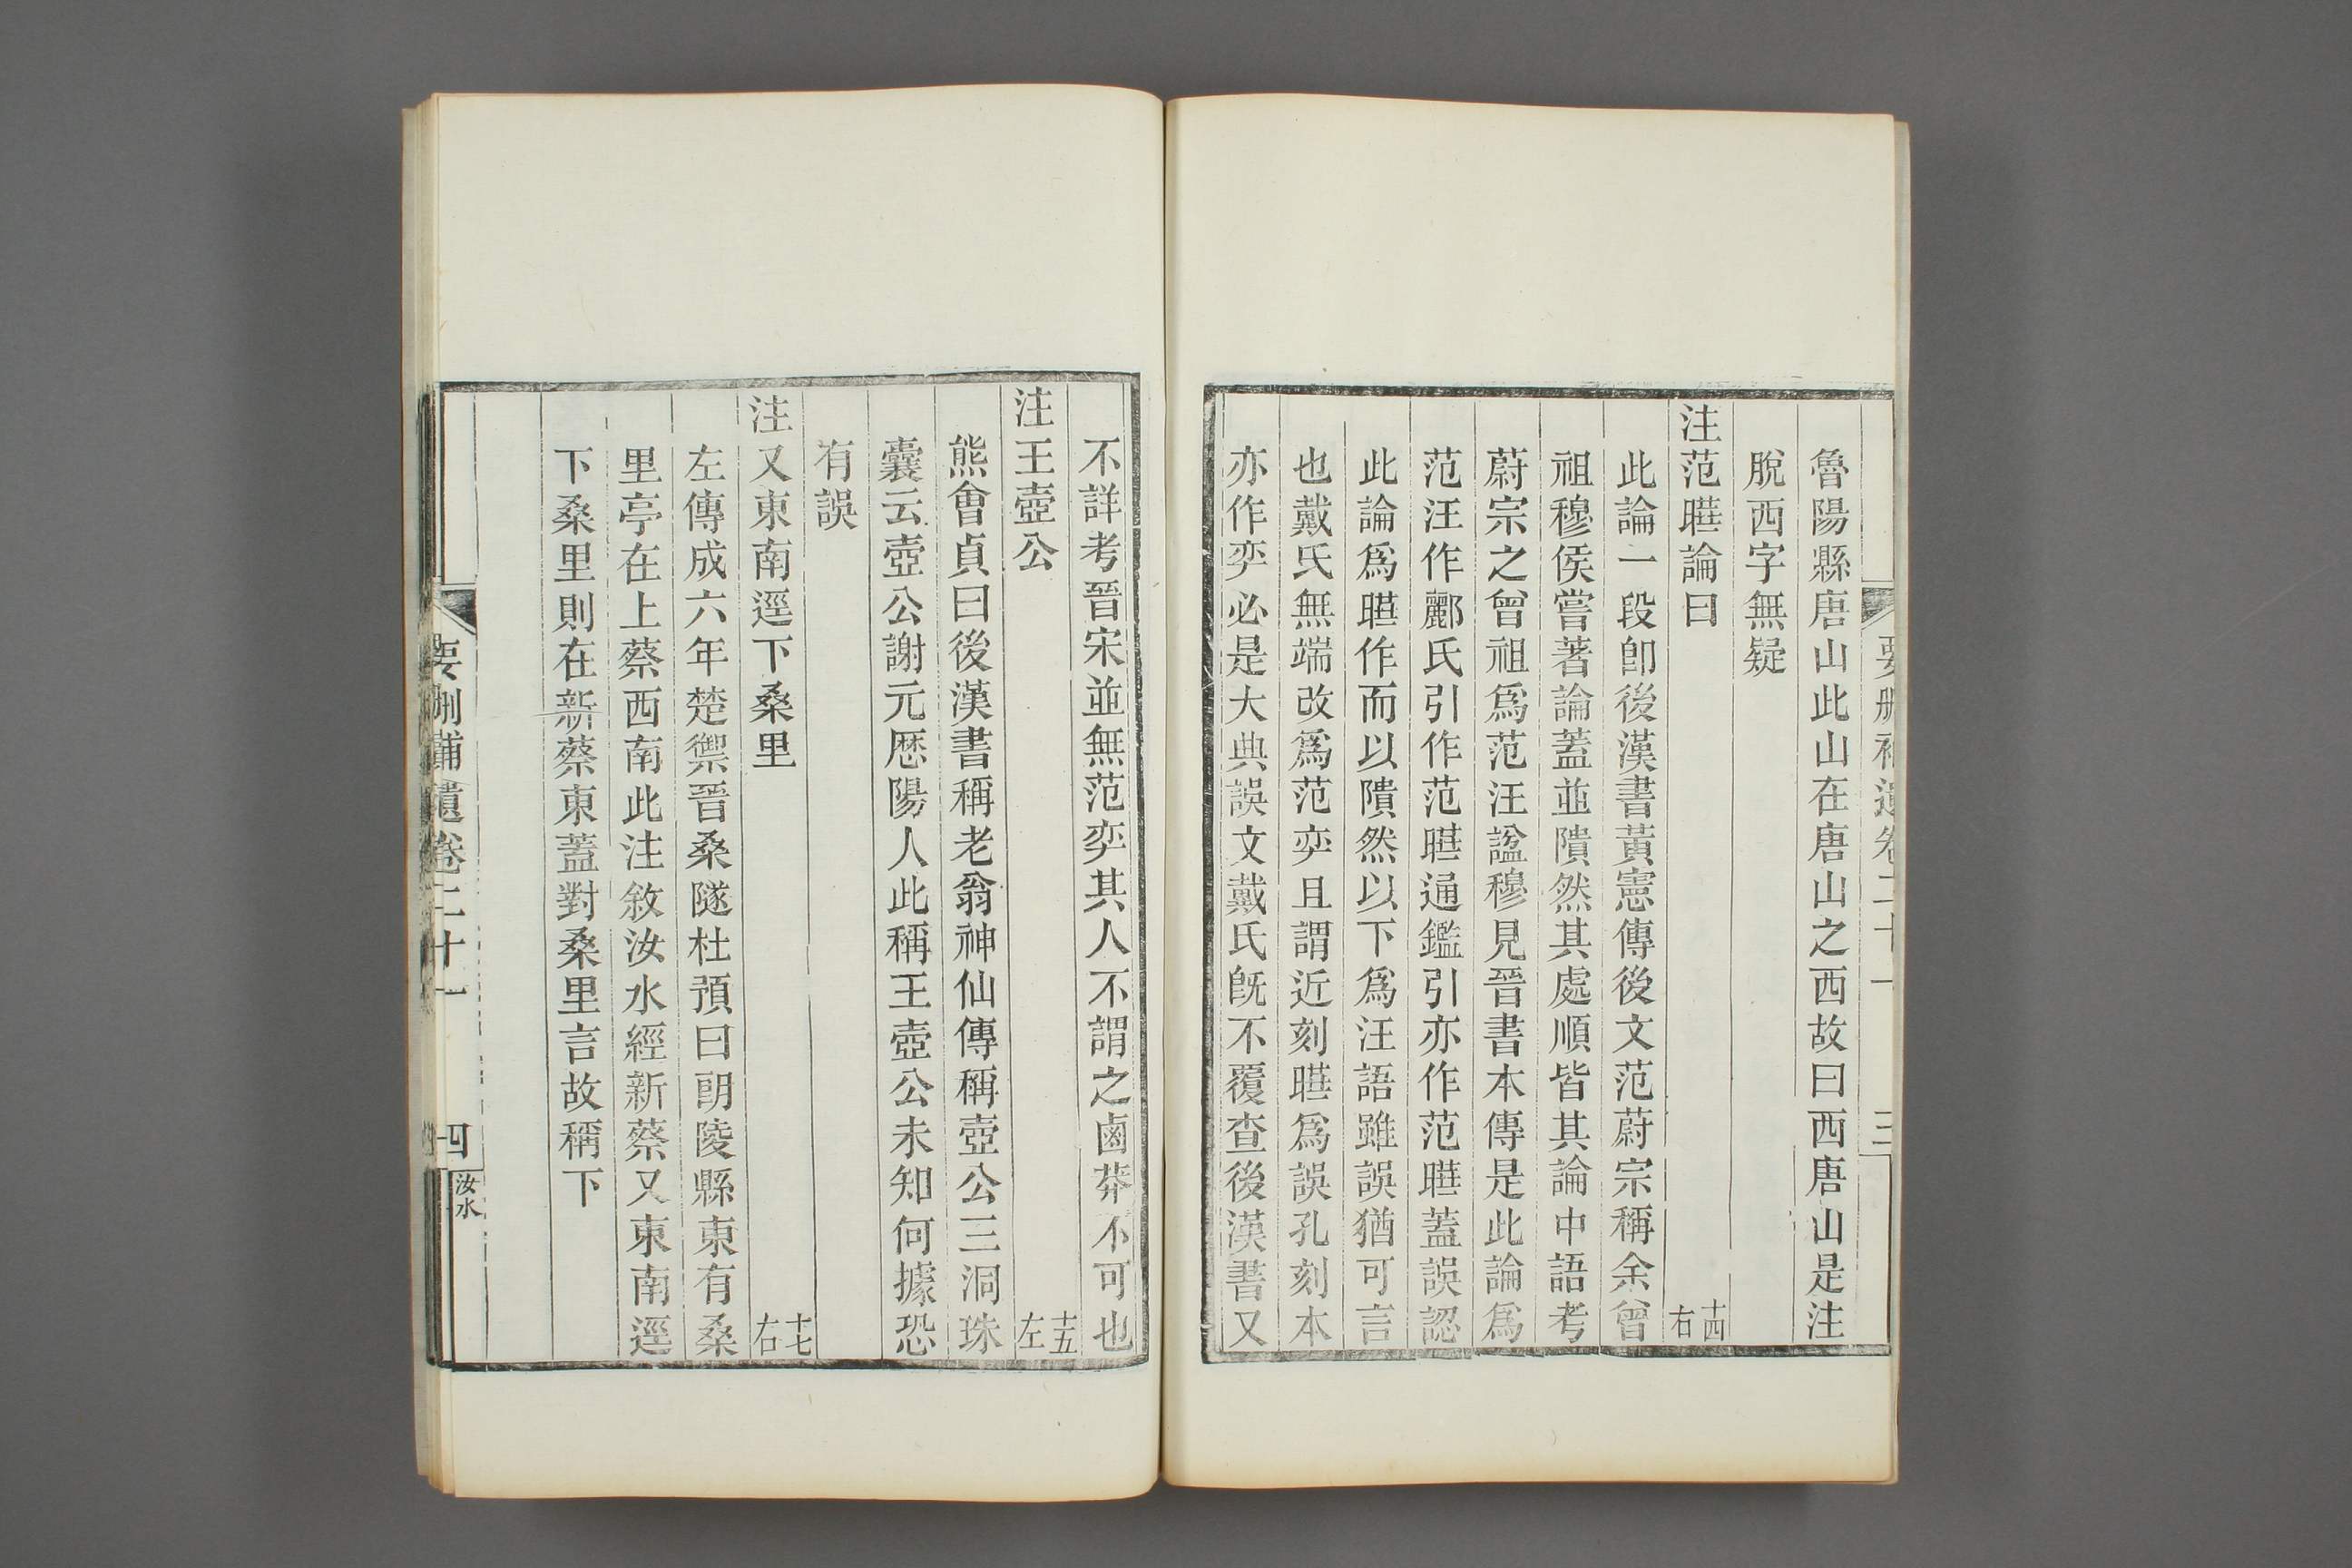 要刪補遺卷二十一 三
魯陽縣唐山此山在唐山之西故曰西唐山是注
脫西字無疑
注范曄論曰 十四右
此論一段卽後漢書黃憲傳後文范蔚宗稱余曾
祖穆侯嘗著論蓋並隤然其處順皆其論中語考
蔚宗之曾祖爲范汪諡穆見晉書本傳是此論爲
范汪作酈氏引作范曄通鑑引亦作范曄蓋誤認
此論爲曄作而以隤然以下爲汪語雖誤猶可言
也戴氏無端改爲范奕且謂近刻曄爲誤孔刻本
亦作奕必是大典誤文戴氏旣不覆查後漢書又
不詳考晉宋並無范奕其人不謂之鹵莽不可也
注王壺公 十五左
熊會貞曰後漢書稱老翁神仙傳稱壺公三洞珠
囊云壺公謝元歷陽人此稱王壺公未知何據恐
有誤
注又東南逕下桑里 十七右
左傳成六年楚禦晉桑隧杜預曰朗陵縣東有桑
里亭在上蔡西南此注敘汝水經新蔡又東南逕
下桑里則在新蔡東蓋對桑里言故稱下
要刪補遺卷二十一 四 汝水